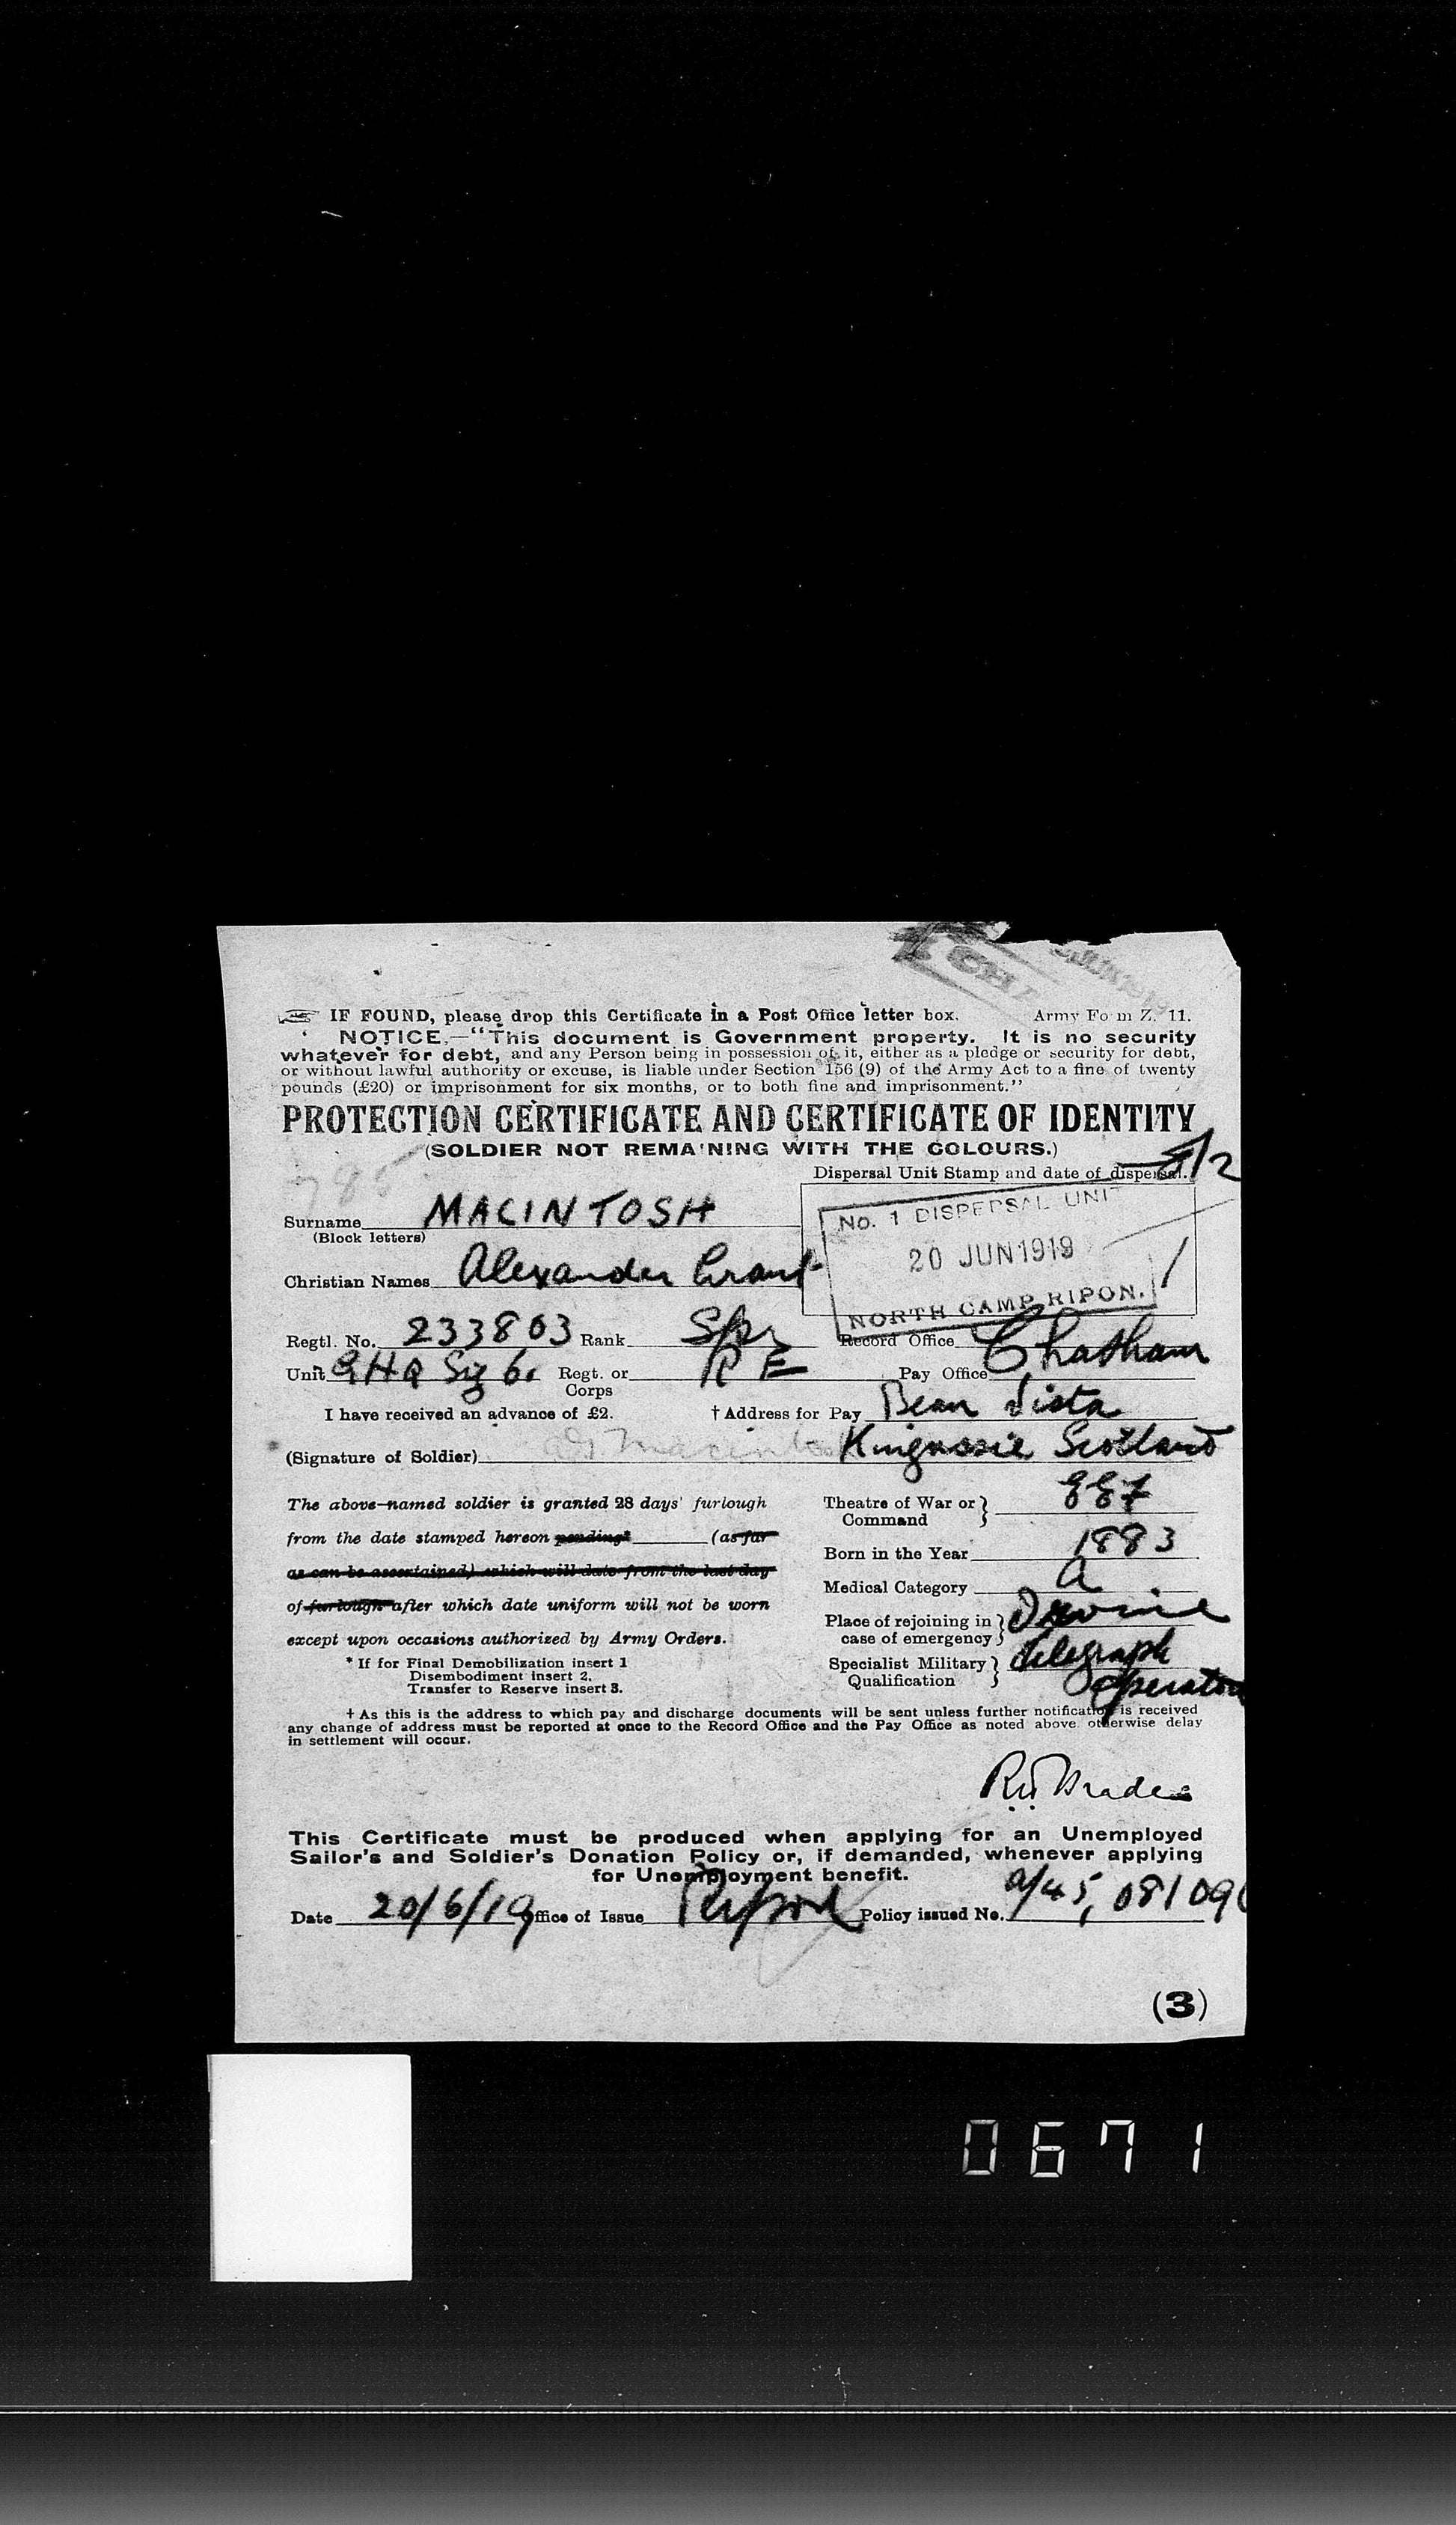 IF FOUND, please drop this Certificate in a Post Office letter box. Army Fo m Z. 11.
NOTICE.—"This document is Government property. It is no security
whatever for debt, and any Person being in possession of it, either as a pledge or security for debt,
or without lawful authority or excuse, is liable under Section 156 (9) of the Army Act to a fine of twenty
pounds (£20) or imprisonment for six months, or to both fine and imprisonment."
PROTECTION CERTIFICATE AND CERTIFICATE OF IDENTITY
(SOLDIER NOT REMAINING WITH THE COLOURS.)
785
Dispersal Unit Stamp and date of dispersal.
Surname MACINTOSH
(Block letters)
No. 1 DISPERSAL UNIT
20 JUN 1919
NORTH CAMP RIPON.
Christian Names Alexander Grant
Regtl. No. 233803 Rank Spr Record Office Chatham
Unit GHQ Sig Regt. or Corps R E Pay Office
I have received an advance of £2. † Address for Pay Beau Vista
(Signature of Soldier) Macintosh Kingussie Scotland
The above-named soldier is granted 28 days' furlough
from the date stamped hereon pending* (as far
as can be ascertained) which will date from the last day
of furlough after which date uniform will not be worn
except upon occasions authorized by Army Orders.
* If for Final Demobilization insert 1
Disembodiment insert 2.
Transfer to Reserve insert 3.
Theatre of War or Command EEF
Born in the Year 1883
Medical Category A
Place of rejoining in case of emergency
Specialist Military Qualification Telegraph Operator
† As this is the address to which pay and discharge documents will be sent unless further notification is received
any change of address must be reported at once to the Record Office and the Pay Office as noted above. otherwise delay
in settlement will occur.
This Certificate must be produced when applying for an Unemployed
Sailor's and Soldier's Donation Policy or, if demanded, whenever applying
for Unemployment benefit.
Date 20/6/19 Office of Issue Ripon Policy issued No. A/45, 08109
(3)
0671